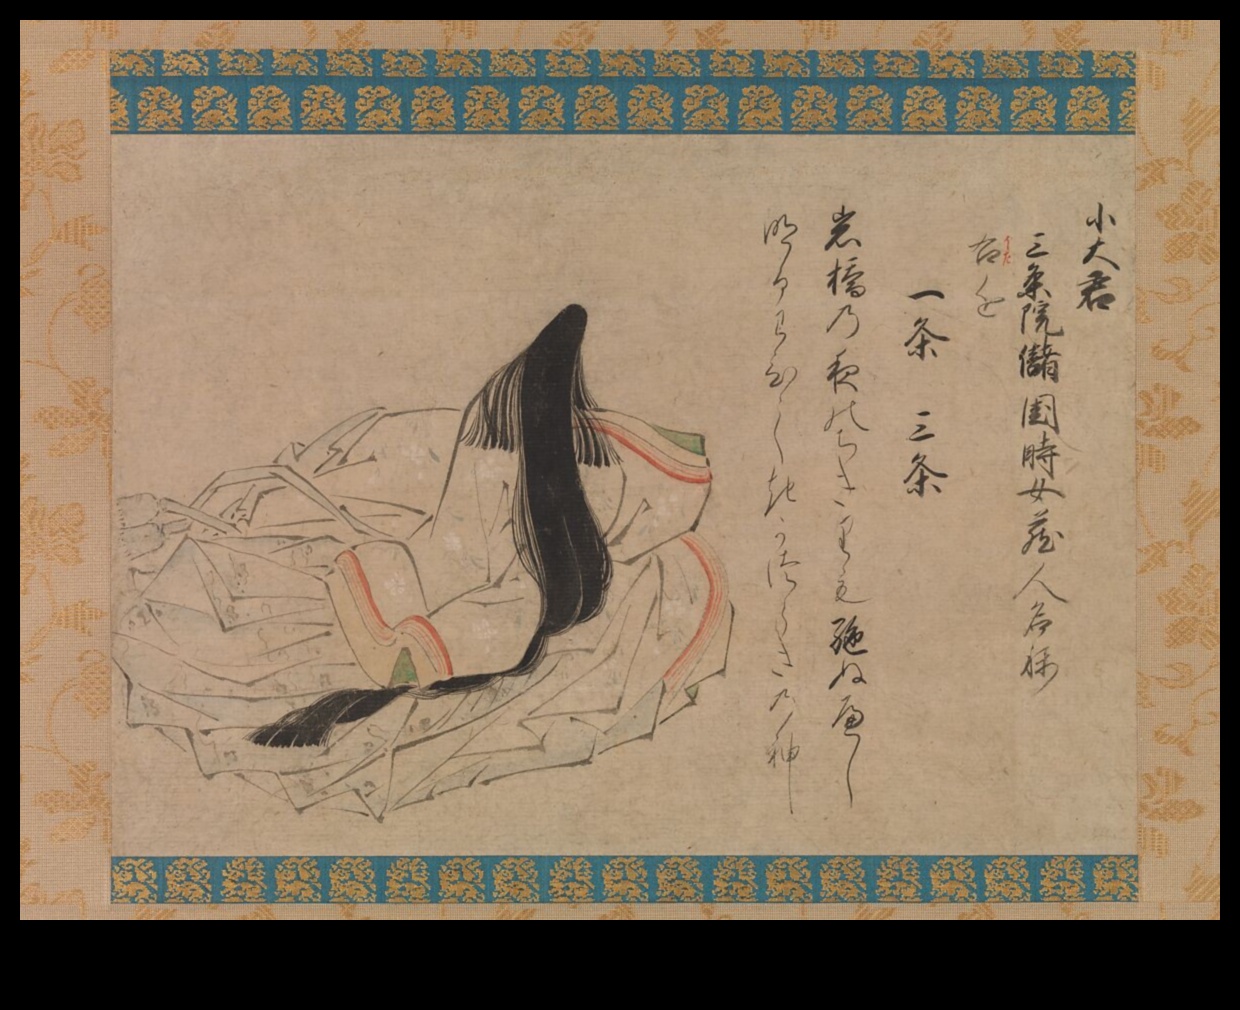 小大君
三条院儲国時女蔵人名称
右近
一条　三条
岩橋乃夜能ちきりも絶ぬへし
明るわひしき可徒らきの神